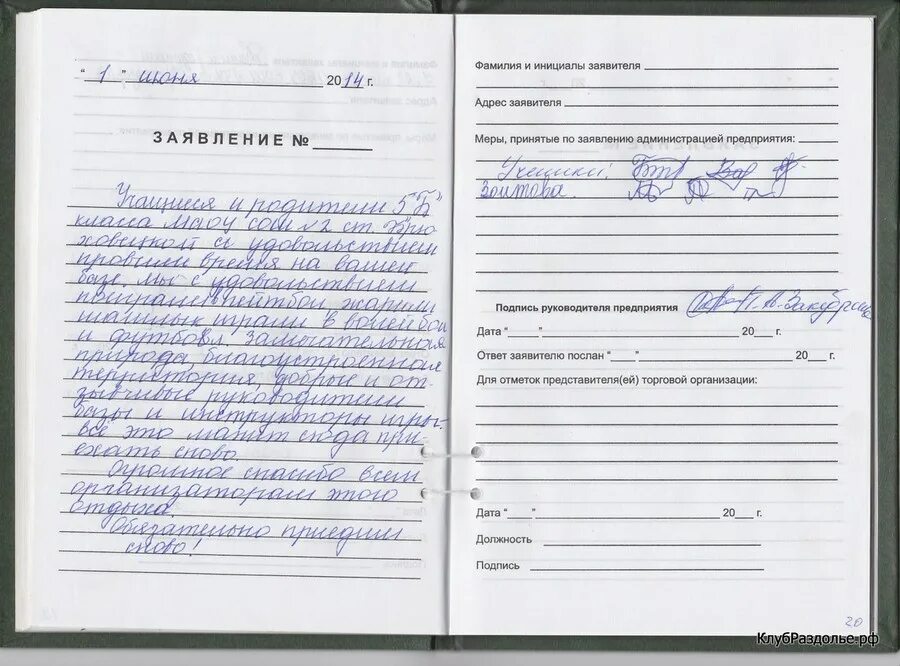 " 1 " июня 2014 г.
ЗАЯВЛЕНИЕ №
Учащиеся и родители 5 "Б"
класса МАОУ СОШ №2 ст. Брю-
ховецкой с удовольствием
провели время на вашей
базе. Мы с удовольствием
поиграли пейтбол жарили
шашлык грали в волейбол
и футбол. Замечательная
природа, благоустроенная
территория, добрые и от-
зывчивые руководители
базы и инструкторы игры.
все это манит сюда при-
ехать снова.
Огромное спасибо всем
организаторам этого
отдыха.
Обязательно приедим
снова!
Фамилия и инициалы заявителя
Адрес заявителя
Меры, принятые по заявлению администрацией предприятия:
Ученики:
Подпись руководителя предприятия
Дата " " 20 г.
Ответ заявителю послан " " 20 г.
Для отметок представителя(ей) торговой организации:
Дата " " 20 г.
Должность
Подпись
20
КлубРаздолье.рф